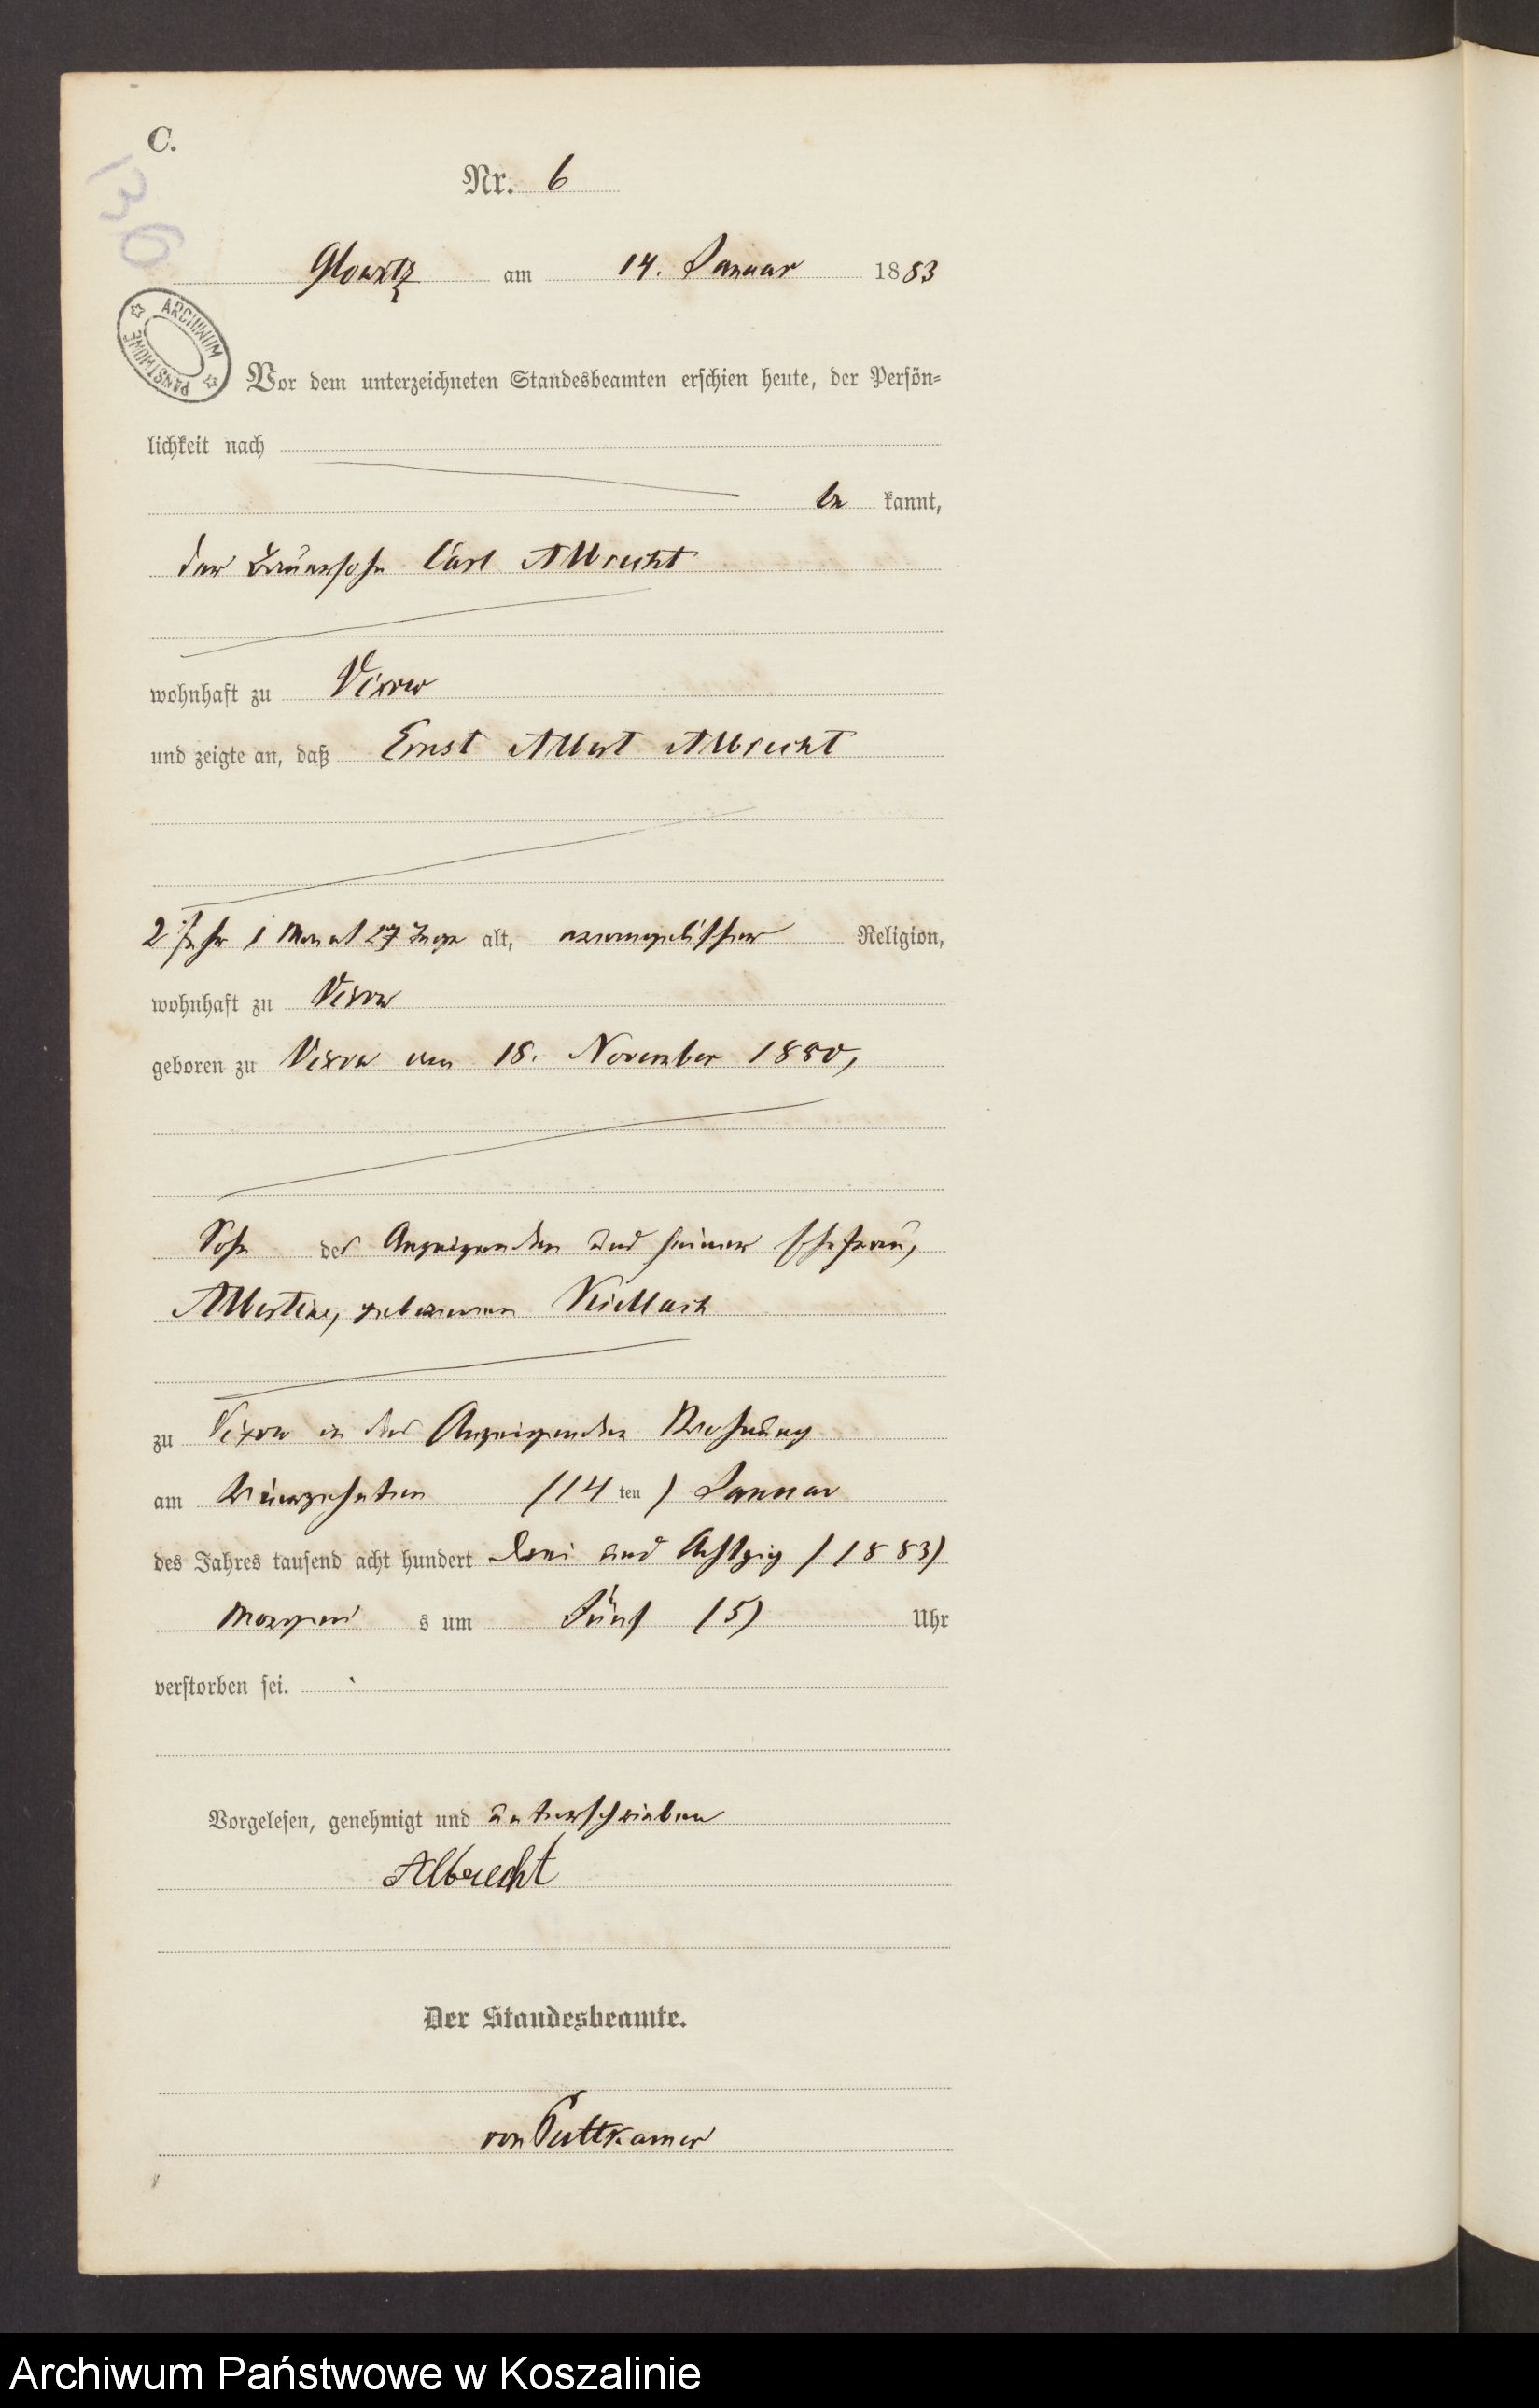 C.
136
Nr. 6
Glowitz am 14. Januar 1883
ARCHIWUM PAŃSTWOWE
Vor dem unterzeichneten Standesbeamten erschien heute, der Persön-
lichkeit nach
be kannt,
der Bauersohn Carl Albrecht
wohnhaft zu Vixow
und zeigte an, daß Ernst Albert Albrecht
2 Jahr 1 Monat 27 Tage alt, evangelischer Religion,
wohnhaft zu Vixow
geboren zu Vixow am 18. November 1880,
Sohn des Anzeigenden und seiner Ehefrau,
Albertine, geborenen
zu Vixow in des Anzeigenden Wohnung
am vierzehnten (14 ten) Januar
des Jahres tausend acht hundert drei und Achtzig (1883)
Morgen s um Fünf (5) Uhr
verstorben sei.
Vorgelesen, genehmigt und unterschrieben
Albrecht
Der Standesbeamte.
von Puttkamer
Archiwum Państwowe w Koszalinie